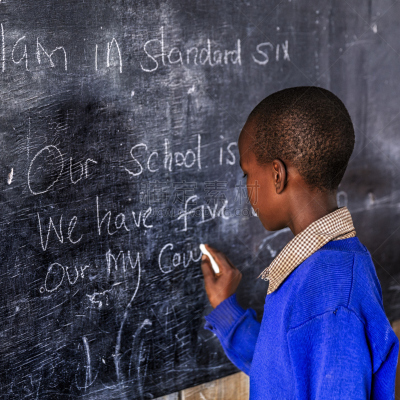 I am in Standard six
Our school is
We have five
Our my Cow